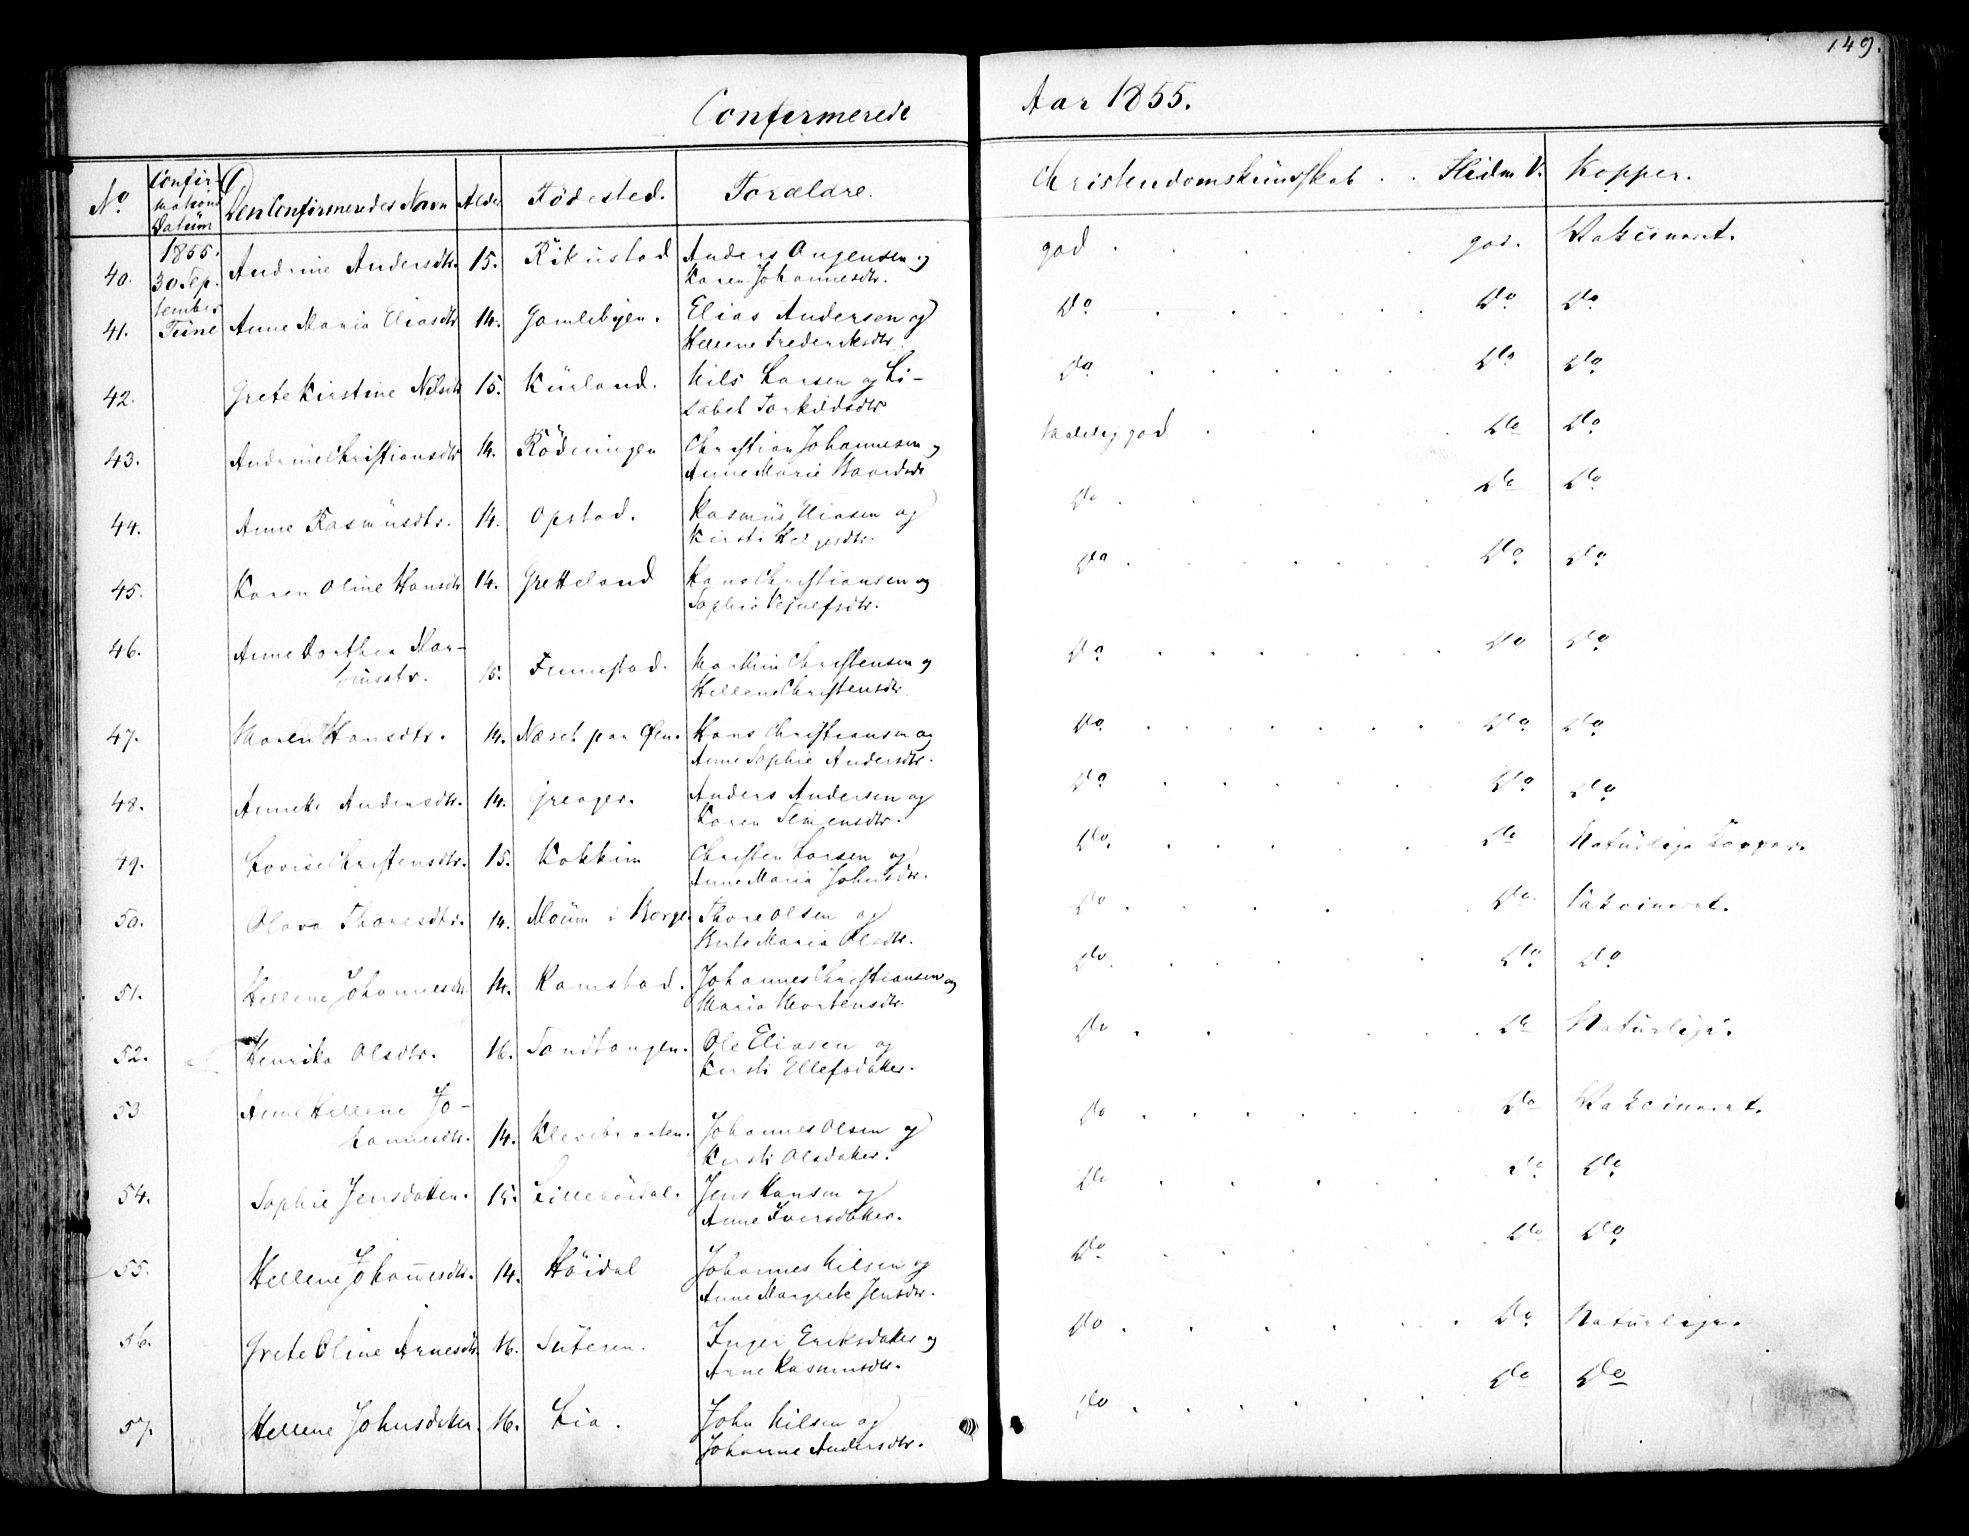 149.
Confirmerede Aar 1855.
No Confir- Den Confirmeredes Navn Alder Födested. Forældre. Christendomskundskab . . Flid m V. Kopper.
mations
Datum
1855.
40. 30 Sep- Andrine Andersdtr. 15. Rikustad Anders Ongensen og god . . . . . god. Vakcineret.
Karen Johannesdtr.
tember
41. Tune Anne Maria Eliasdtr 14. Gamlebyen. Elias Andersen og Do . . . . . Do Do
Hellene Frederiksdtr.
42. Grete Kirstine Nilsdtr 15. Kürland. Nils Larsen og Li- Do . . . . . Do Do
sabet Torkildsdtr
43. Andrine Christiansdtr 14. Rödningen Christian Johannesen og Maadelig god . . . . Do Do
Anne Marie Baardsdtr
44. Anne Rasmüsdtr. 14. Opstad. Rasmüs Eliasen og Do . . . . Do Do
Kirsti Helgesdtr.
45. Karen Oline Hansdtr 14. Gretteland Hans Christiansen og Do . . . . . Do Do
Sophie
46. Anne Dorthea Mar-
tinsdtr. 15. Finnestad. Martin Christensen og Do . . . . . Do Do
Hellene Christensdtr.
47. Maren Hansdtr. 14. Næset paa Öen. Hans Christiansen og Do . . . . . Do Do
Anne Sophie Andersdtr.
48. Annette Andersdtr. 14. Greager. Anders Andersen og Do . . . . . Do Do
Karen Simensdtr.
49. Lovise Christensdtr. 15. Kokkim Christen Larsen og Do. . . . . . Do Naturlige Kopper.
Anne Maria Johnsdtr.
50. Olava Thoresdtr. 14. Moüm i Borge. Thore Olsen og Do . . . . Do. Vakcineret.
Berte Maria Olsdtr.
51. Hellene Johannesdtr 14. Ramstad. Johannes Christiansen og Do. . . . . . Do Do
Maria Mortensdtr.
52. Henrika Olsdtr. 16. Sandtangen. Ole Eliasen og Do . . . . . Do Naturlige.
Kirsti Ellefsdatter.
53 Anne Hellene Jo-
hannesdtr. 14. Klevibraaten. Johannes Olsen og Do . . . . . Do Vakcineret.
Kirsti Olsdatter.
54. Sophie Jensdatter. 15. Lillehöidal. Jens Hansen og Do . . . . . Do Do
Anne Iversdatter.
55. Hellene Johannesdtr. 14. Höidal Johannes Nilsen og Do . . . . . Do Do
Anne Margrete Jensdtr.
56. Grete Oline Arnesdtr. 16. Süteren. Inger Eriksdatter og Do . . . . . Do Naturlige.
Arne Rasmusdtr.
57. Hellene Johnsdatter. 16. Lia. John Nilsen og Do . . . . . Do Do
Johanne Andersdtr.